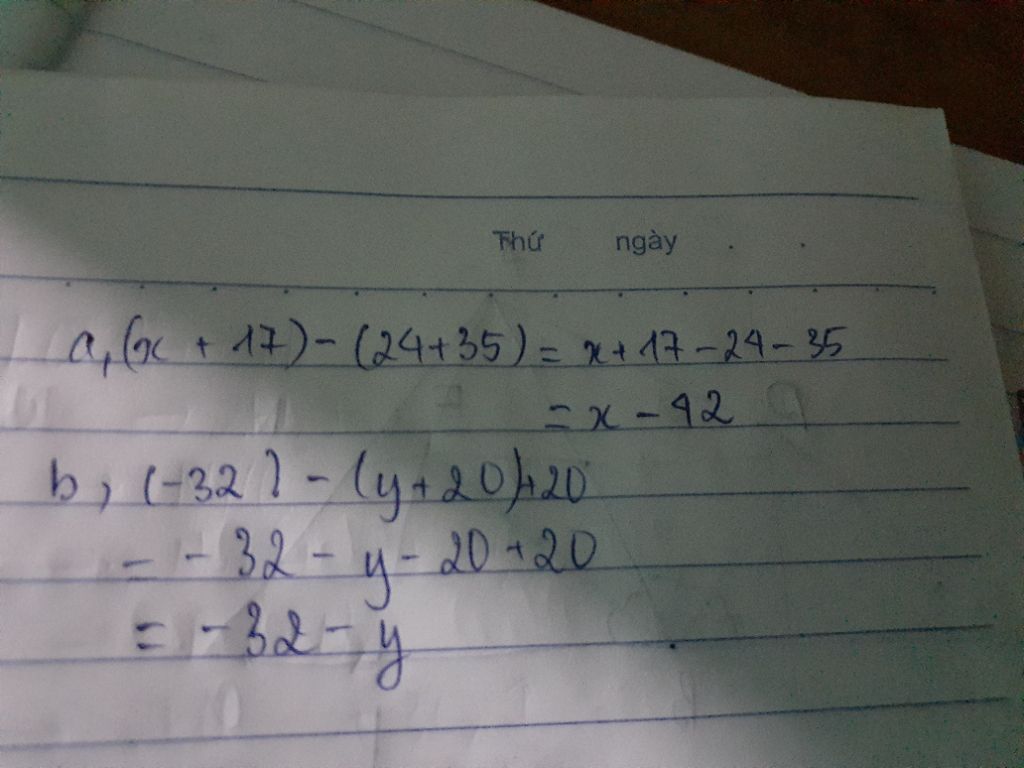 Thứ ngày . .
a, (x + 17) - (24+35) = x+17-24-35
= x - 42
b, (-32) - (y+20)+20
= -32 - y - 20 + 20
= -32 - y